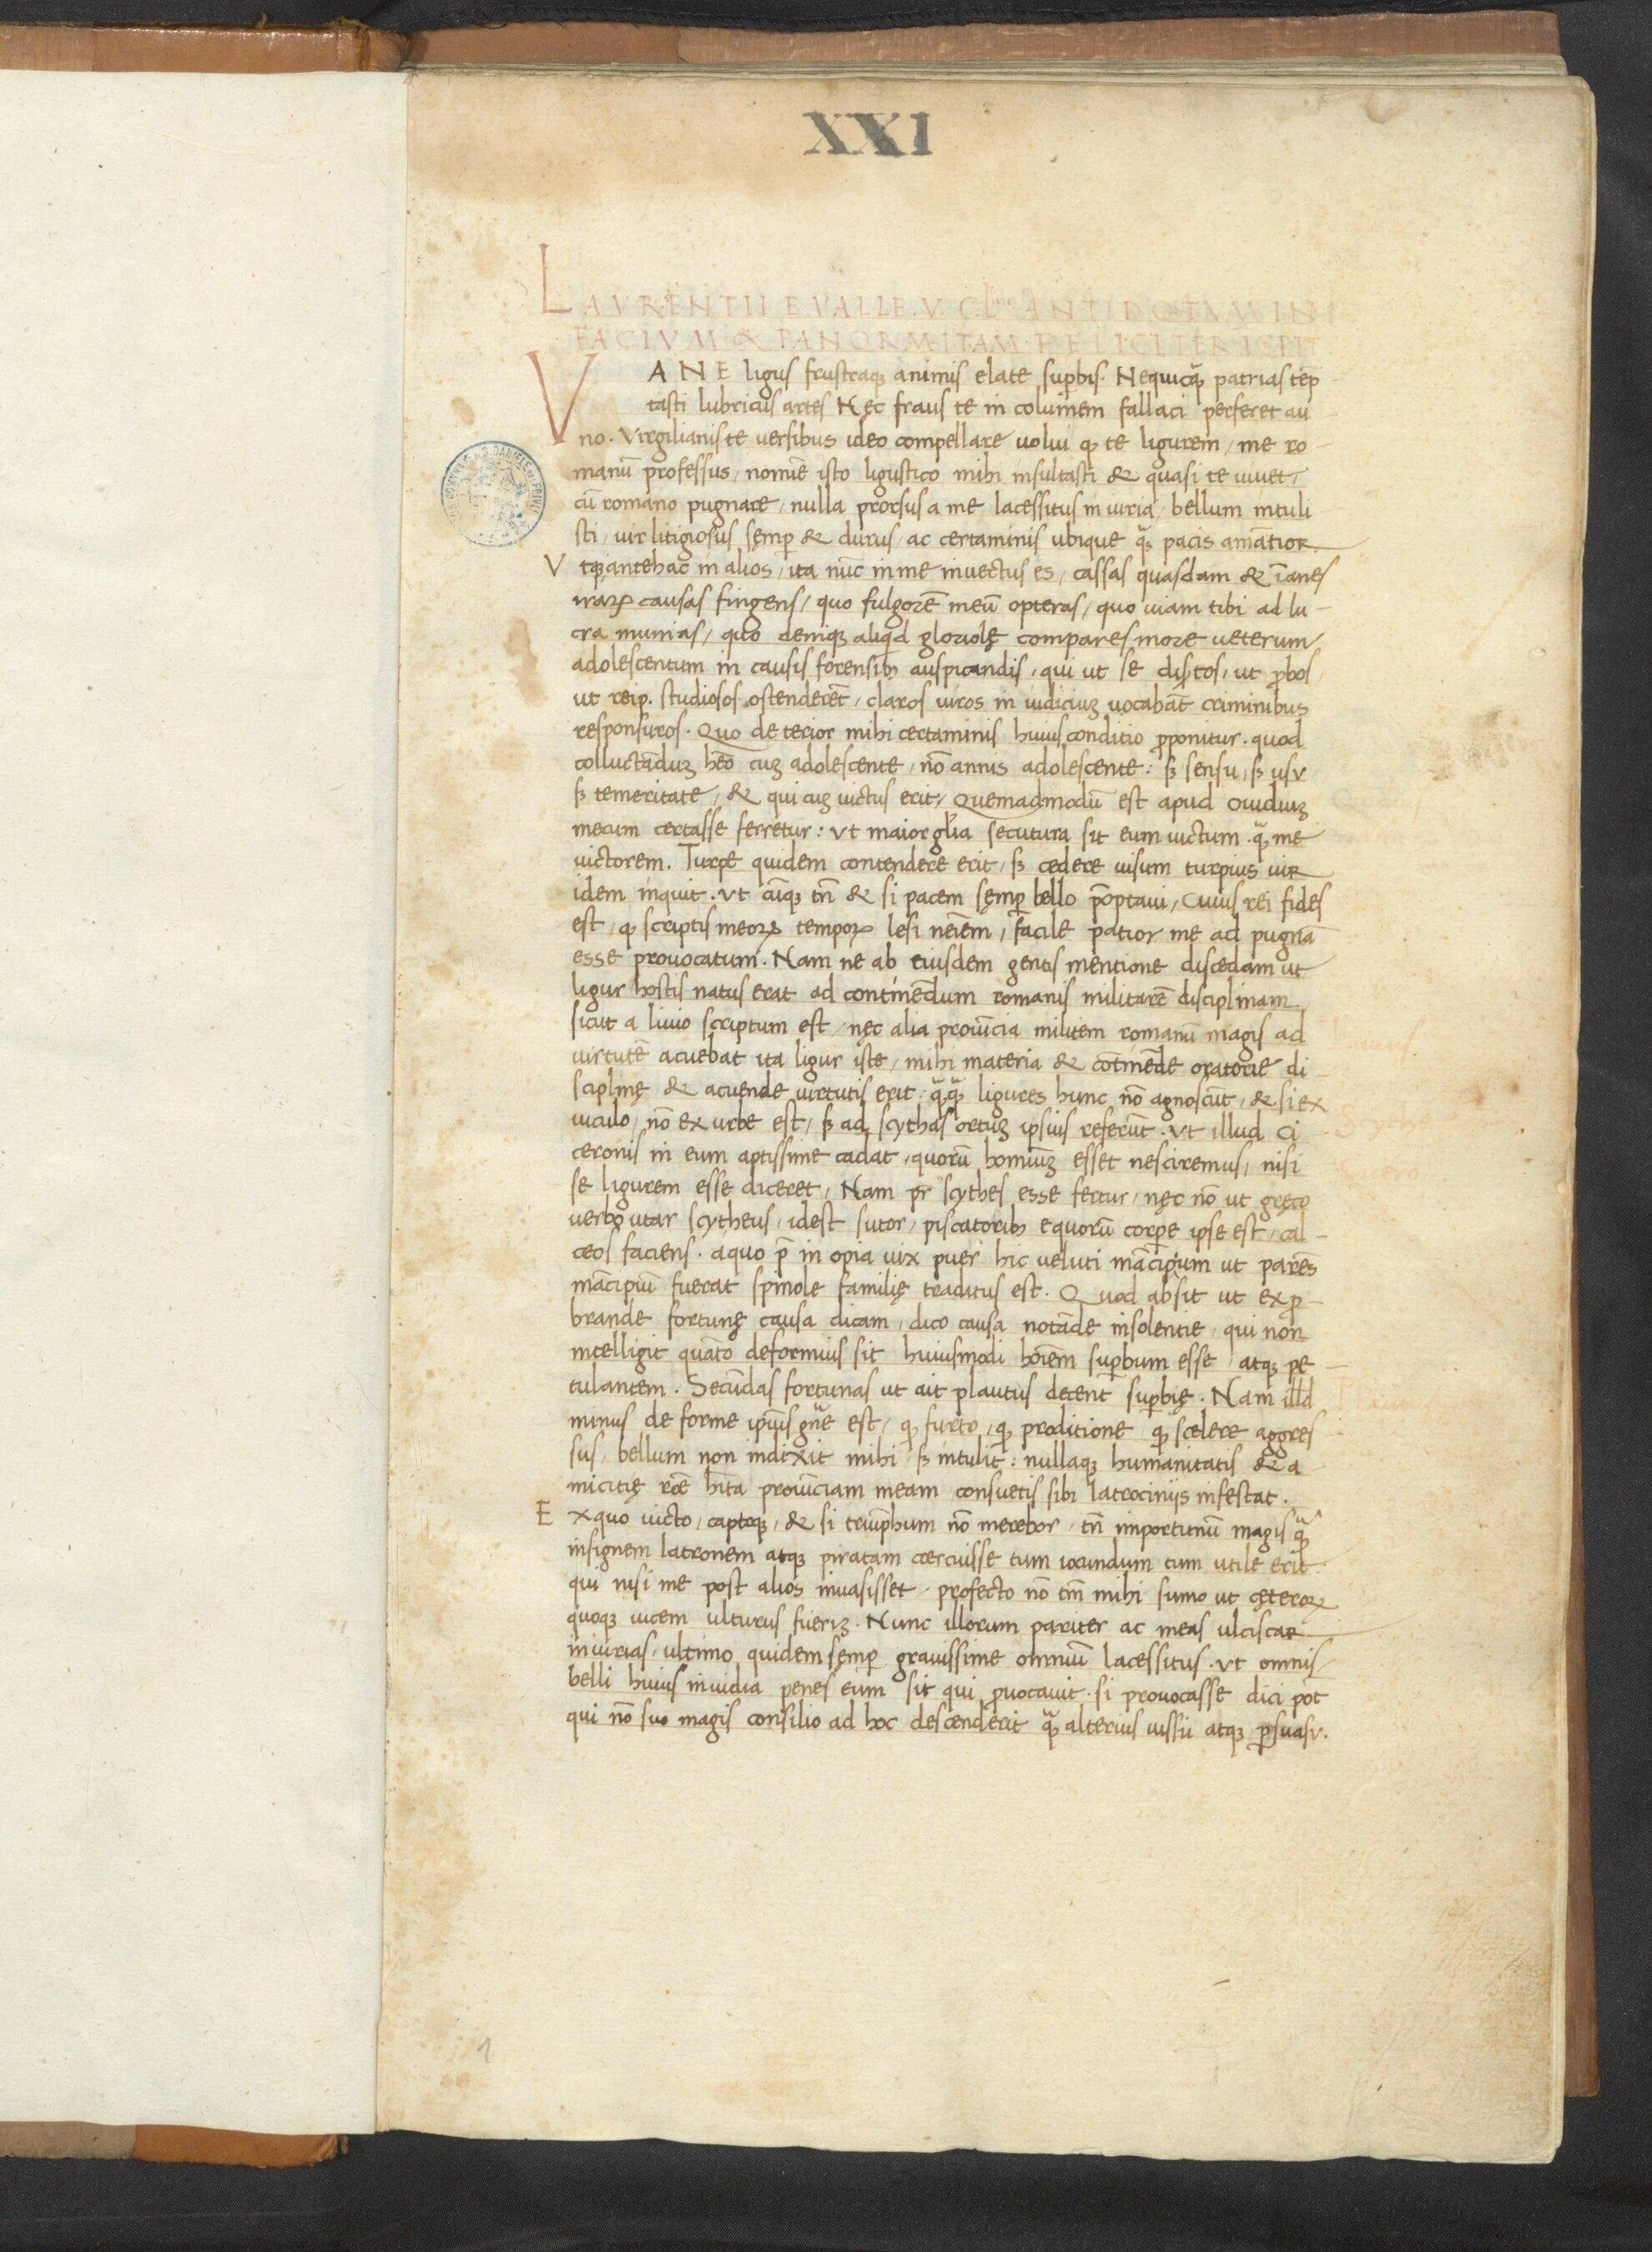 XXI
LAVRENTII E VALLE. V. C. ANTIDOTVM IN
FACIVM & PANORMITAM FELICITER ICPIT
VANE ligus frustraq; animis elate suꝑbis. Nequicq̃ patrias tep
tasti lubricus artes Nec fraus te in columem fallaci perferet au
no. Virgilianis te uersibus ideo compellare uolui q; te ligurem / me ro
manũ professus / nomĩe isto ligustico mihi insultasti & quasi te iuuet /
cũ romano pugnare / nulla prorsus a me lacessitus in iuria / bellum intuli
sti / uir litigiosus semꝑ & durus / ac certaminis ubique q̃ pacis amãtior
Vtq; antehac in alios / ita nũc in me inuectus es / cassas quasdam & ĩanes
iraꝝ causas fingens / quo fulgorẽ meũ opteras / quo uiam tibi ad lu-
cra munias / quo deniq; aliqd gloriolę compares more ueterum /
adolescentum in causis forensibꝫ auspicandis / qui ut se dis̃tos / ut ꝓbos
ut reip. studiosos ostenderẽt / claros uiros in iudiciuꝫ uocabãt criminibus
responsuros. Quo de terior mihi certaminis huius conditio ꝓponitur. quod
colluctãduꝫ hẽo cuꝫ adolescente / nõ annis adolescente: sꝫ sensu / sꝫ usu
sꝫ temeritate / & qui cuꝫ uictus erit / Quemadmodũ est apud Ouidiuꝫ
mecum certasse ferretur: Vt maior gl̃ia secutura sit eum uictum. q̃ me
uictorem. Turpe quidem contendere erit / sꝫ cedere uisum turpius uir
idem inquit. Vt cũq; tñ & si pacem semꝑ bello p̃optaui / Cuius rei fides
est / q; scriptis meoꝝ tempoꝝ lesi neĩem / facile patior me ad pugnã
esse prouocatum. Nam ne ab eiusdem gentis mentione discedam ut
ligur hostis natus erat ad continẽdum romanis militarẽ disciplinam
sicut a liuio scriptum est / nec alia prouĩcia militem romanũ magis ad
uirtutẽ acuebat ita ligur iste / mihi materia & cõtinẽde oratorie di
sciplinę & acuende uirtutis erit: q̃q̃ ligures hunc nõ agnoscũt / & si ex
uiculo / nõ ex urbe est / sꝫ ad scythas ortuꝫ ipsius referũt. Vt illud Ci
ceronis in eum aptissime cadat / quorũ homĩuꝫ esset nesciremus / nisi
se ligurem esse diceret / Nam pr̃ scythes esse fertur / nęc nõ ut gręco
uerbo utar scytheus / idest sutor / piscatoribꝫ equorũ corꝑe ipse est / cal-
ceos faciens. a quo p̃ in opia uix puer hic ueluti mãcipium ut parẽs
mãcipiũ fuerat spinole familię traditus est. Quod absit ut exꝓ-
brande fortunę causa dicam / dico causa notãde insolentie / qui non
intelligit quãto deformius sit huiusmodi hoĩem suꝑbum esse / atq; pe
tulantem. Secũdas fortunas ut ait plautus decent suꝑbię. Nam illd
minus de forme ip̃ius gñe est / q; furto / q; proditione q; scelere aggres
sus / bellum non indixit mihi sꝫ intulit: nullaq; humanitatis & a
micitię rõe hĩta prouĩciam meam consuetis sibi latrociniis infestat.
Ex quo uicto / captoq; / & si triũphum nõ merebor / tñ importunũ magis q̃
insignem latronem atq; piratam coercuisse tum iocundum tum utile erit
qui nisi me post alios inuasisset / profecto nõ tm̃ mihi sumo ut cęteroꝝ
quoq; uicem ulturus fueriꝫ. Nunc illorum pariter ac meas ulciscar
iniurias / ultimo quidem semꝑ grauissime omniũ lacessitus. Vt omnis /
belli huius inuidia penes eum sit qui ꝓuocauit. si prouocasse dici põt
qui nõ suo magis consilio ad hoc descenderit q̃ alterius iussu atq; ꝑsuasu.
Scythe
Cicero
1